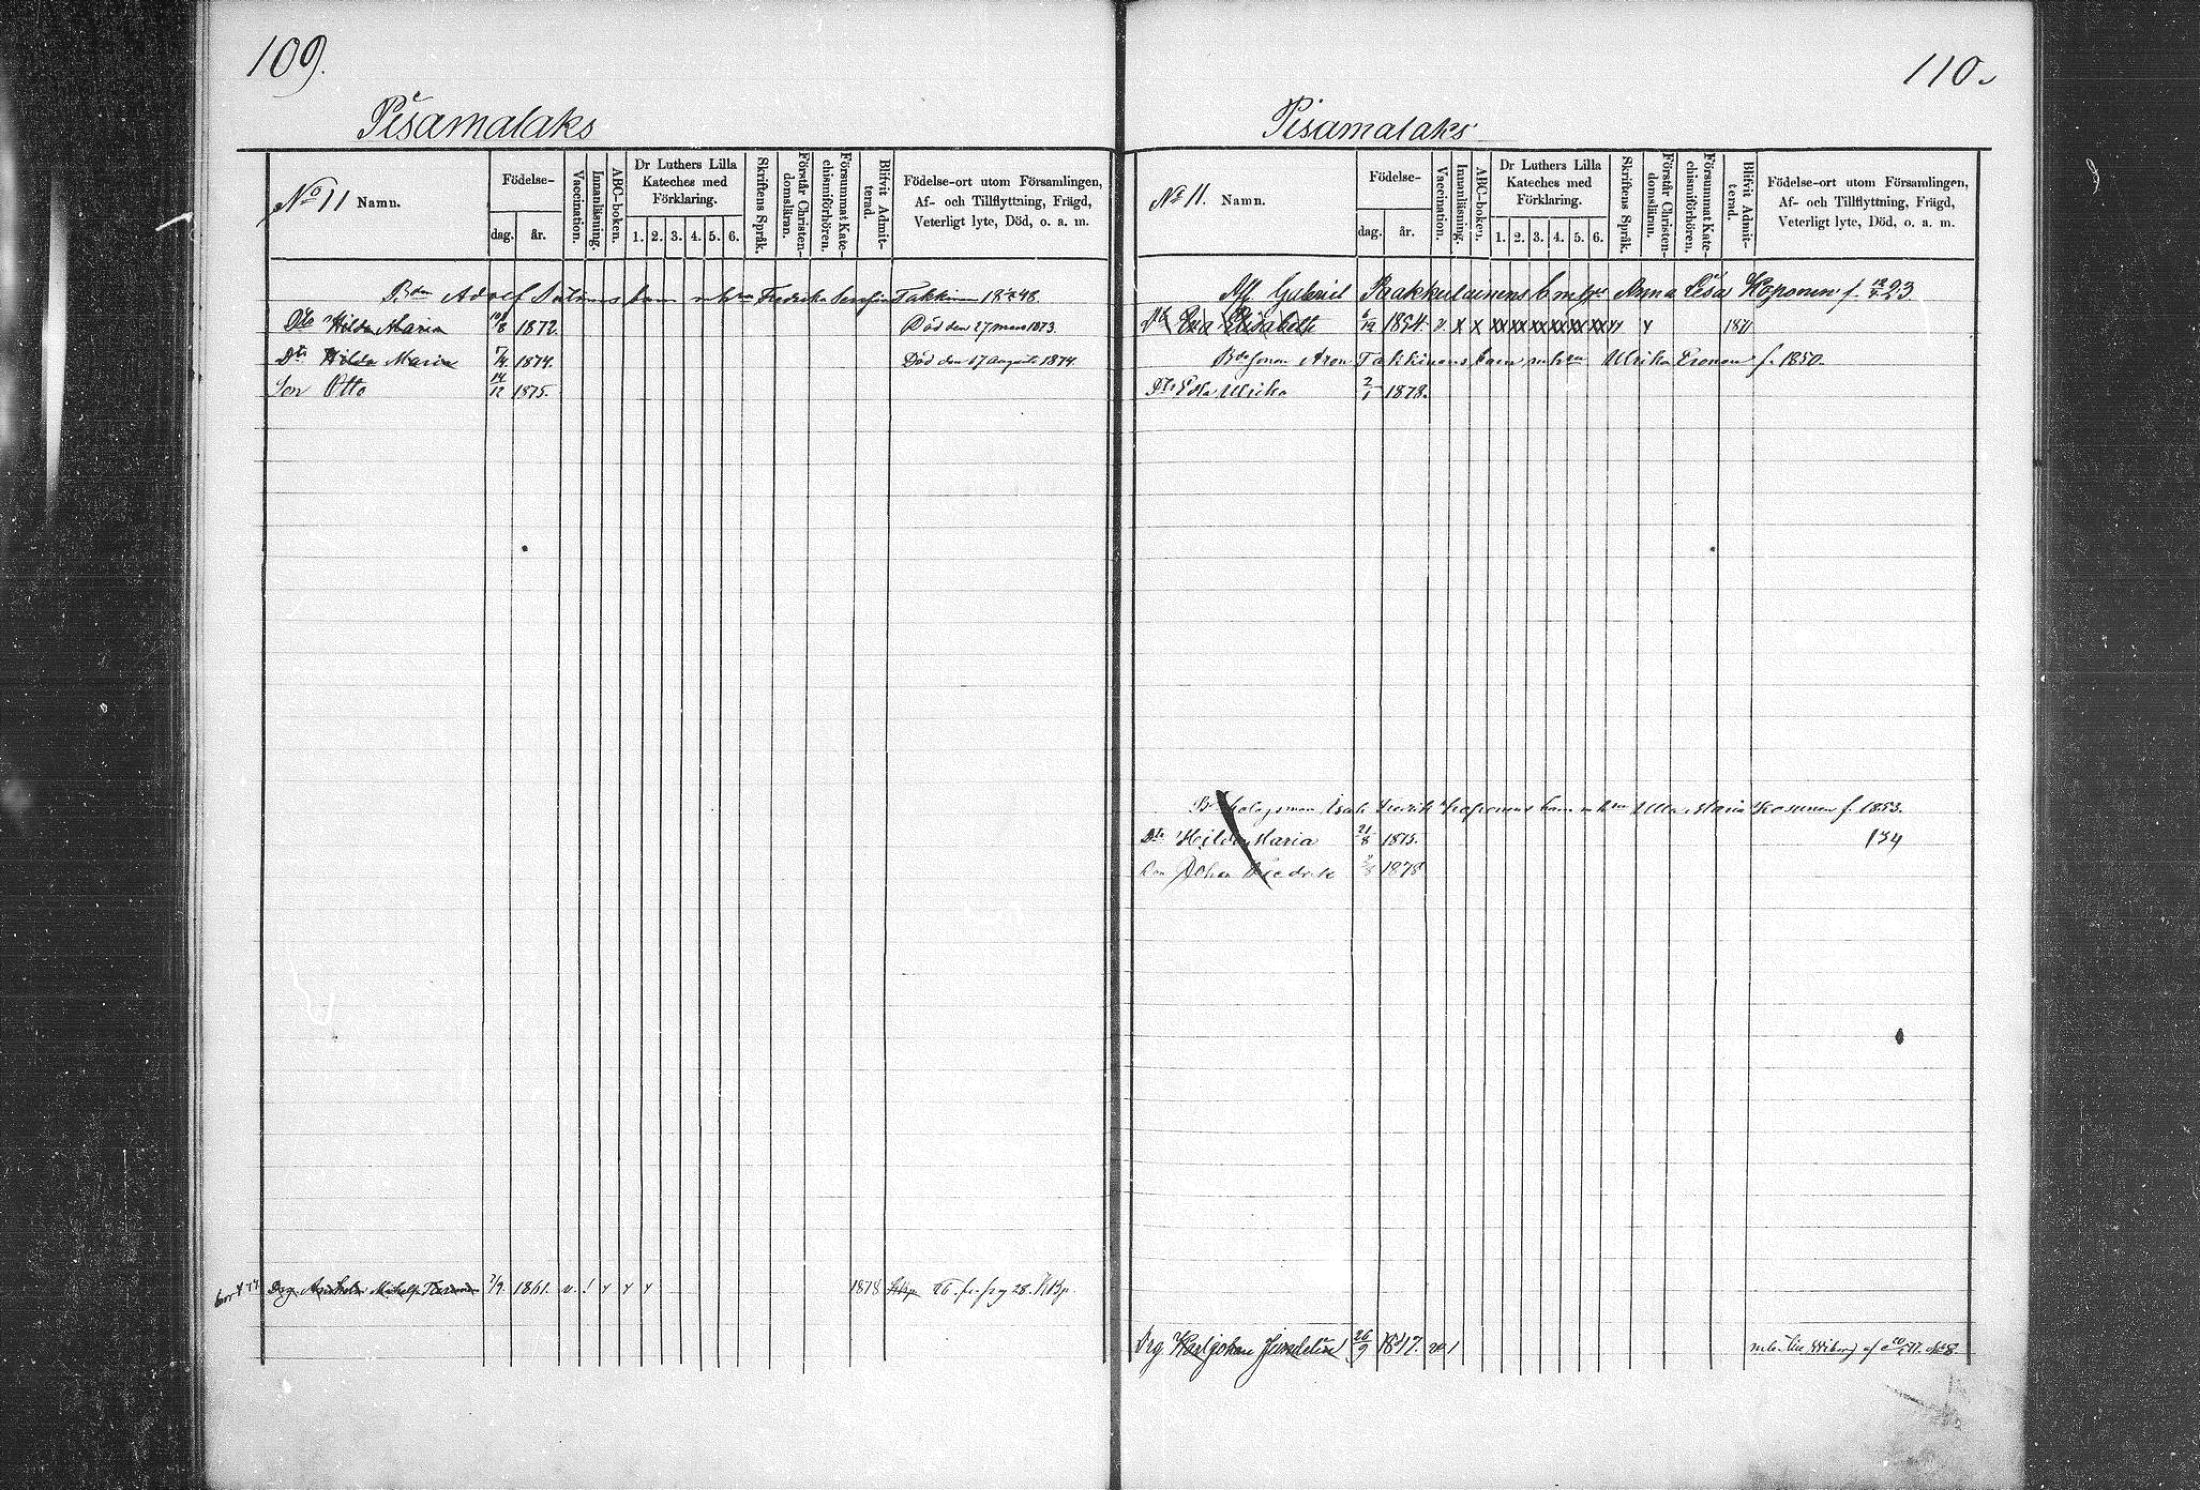 109.
Pisamalaks
No 11 Namn.
Födelse-
dag.
år.
Vaccination.
Innanläsning.
ABC-boken.
Dr Luthers Lilla
Kateches med
Förklaring.
1. 2. 3. 4. 5. 6.
Skriftens Språk.
Förstår Christen-
domsläran.
Försummat Kate-
chismiförhören.
Blifvit Admit-
terad.
Födelse-ort utom Församlingen,
Af- och Tillflyttning, Frägd,
Veterligt lyte, Död, o. a. m.
Adolf barn Fredrika Serafia Takkinen 18 48.
Dtr Hilda Maria 10/8 1872. Död den 27 mars 1873.
Dtr Hilda Maria 7/4 1874. Död den 17 augusti 1874.
Son Otto 14/12 1875.
7/9 1861. v. 1878 28.
110.
Pisamalaks
No 11. Namn.
Födelse-
dag.
år.
Vaccination.
Innanläsning.
ABC-boken.
Dr Luthers Lilla
Kateches med
Förklaring.
1. 2. 3. 4. 5. 6.
Skriftens Språk.
Förstår Christen-
domsläran.
Försummat Kate-
chismiförhören.
Blifvit Admit-
terad.
Födelse-ort utom Församlingen,
Af- och Tillflyttning, Frägd,
Veterligt lyte, Död, o. a. m.
Afl Gabriel Paakkulainens Anna Lisa Koponen f. 23
Dtr Eva Elisabeth 6/12 1854. v x x xx xx xx xx xx xx 1871
Aron Takkinens barn m h Ulrika Eronen f. 1850.
Dtr Edla Ulrika 2/1 1878.
Isak Fredrik Koponens barn m hu Ulla Maria Kosunen f. 1853.
Dtr Hilda Maria 21/8 1875. 134
Son Johan Fredrik 1878
Drg Karl Johan 26/9 1847. Wiborg